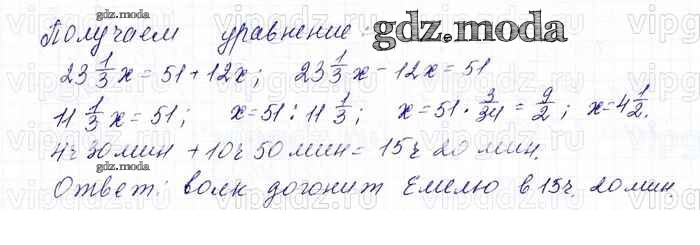 gdz.moda
Получаем уравнение:
23 1/3 x = 51 + 12x; 23 1/3 x - 12x = 51
11 1/3 x = 51; x = 51 : 11 1/3; x = 51 · 3/34 = 9/2; x = 4 1/2.
4ч 30мин + 10ч 50мин = 15ч 20мин.
gdz.moda
Ответ: волк догонит Емелю в 15ч. 20мин.